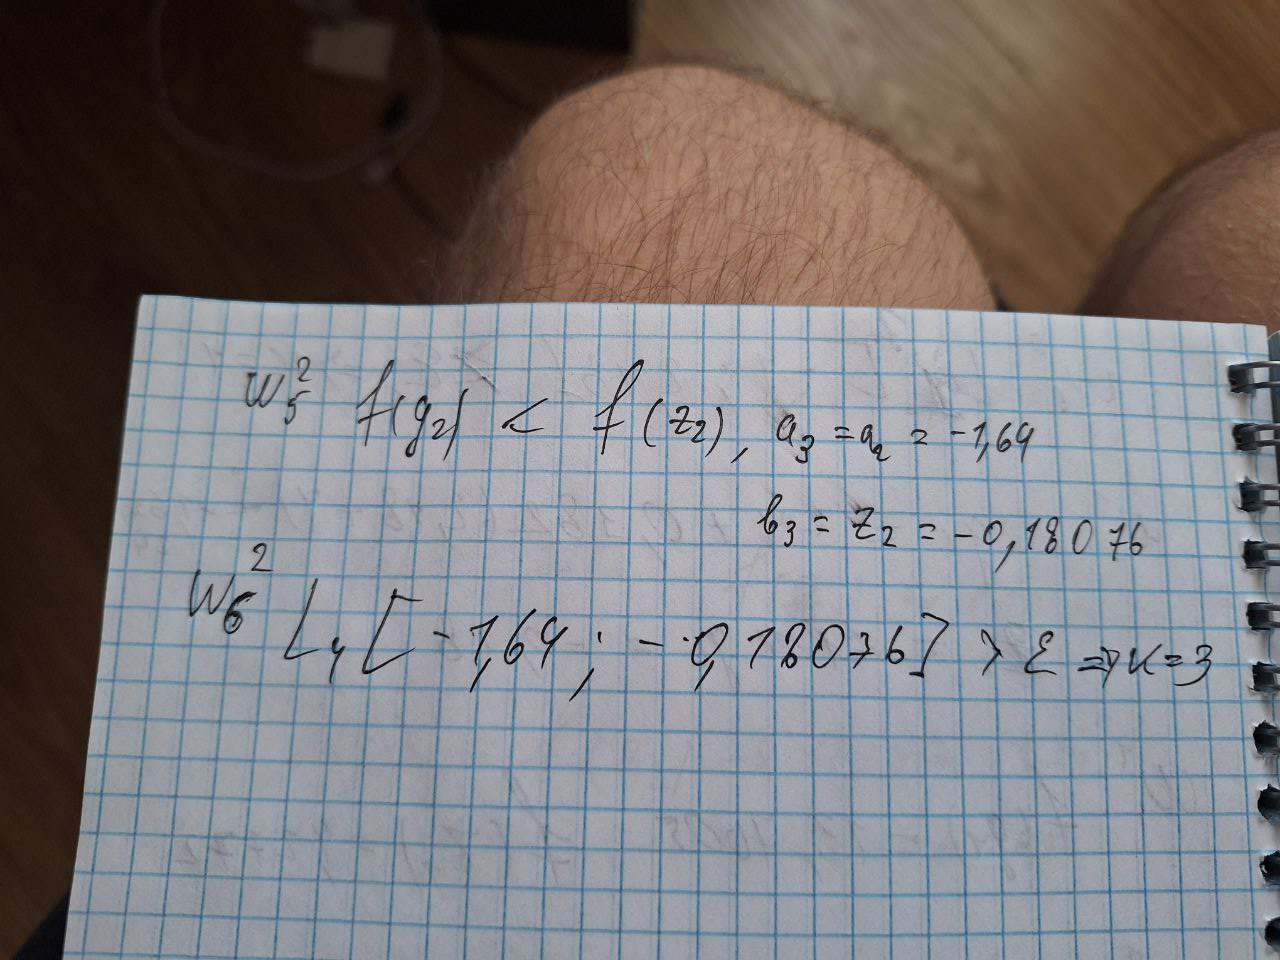 Ш₅² f(y₂) < f(z₂), a₃ = a₂ = -1,64
b₃ = z₂ = -0,18076
Ш₆² L₄ [-1,64; -0,18076] > ε ⇒ k=3